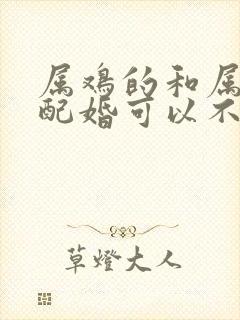 属鸡的和属
配婚可以不
草燈大人